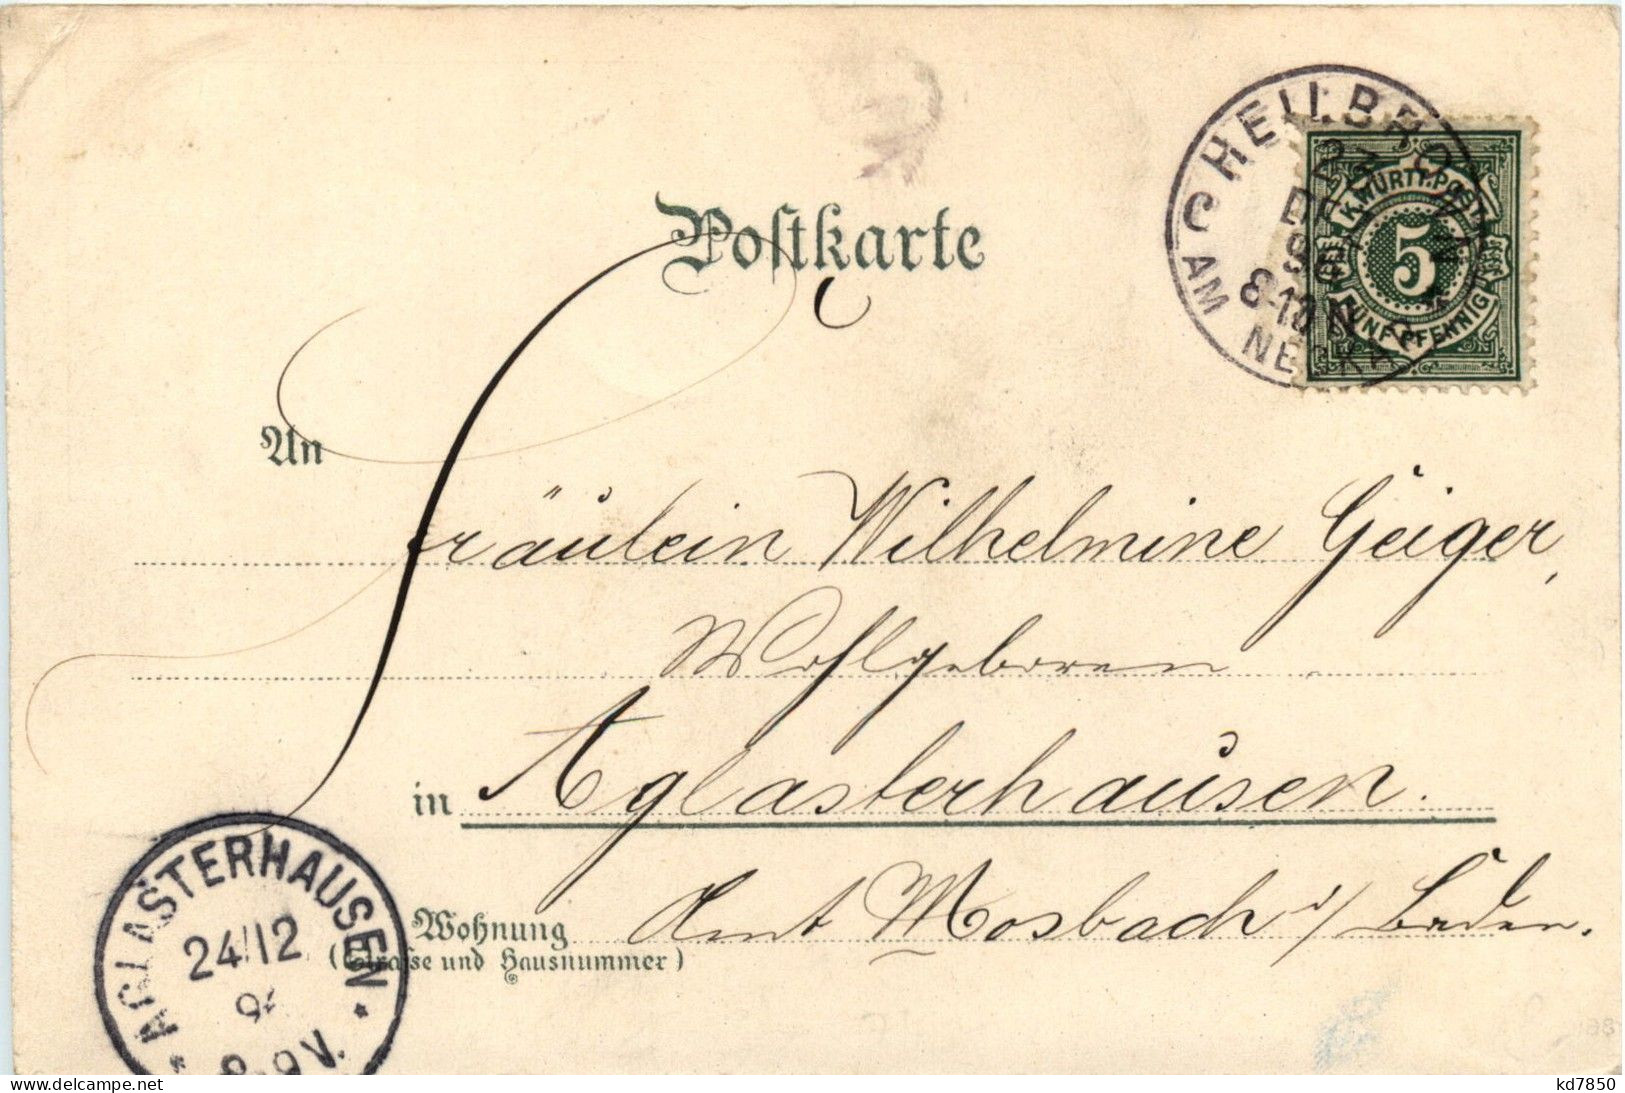 Postkarte
HEILBRONN
C
AM NECKAR
23
DEZ
8-10 N
K.WÜRTT.POST
5
FÜNF PFENNIG
An
Fräulein Wilhelmine Geiger,
Wohlgeboren
in Aglasterhausen.
Wohnung Amt Mosbach i/ Baden.
(Strasse und Hausnummer)
AGLASTERHAUSEN
24/12
8-9V.
https://www.delcampe.net
kd7850